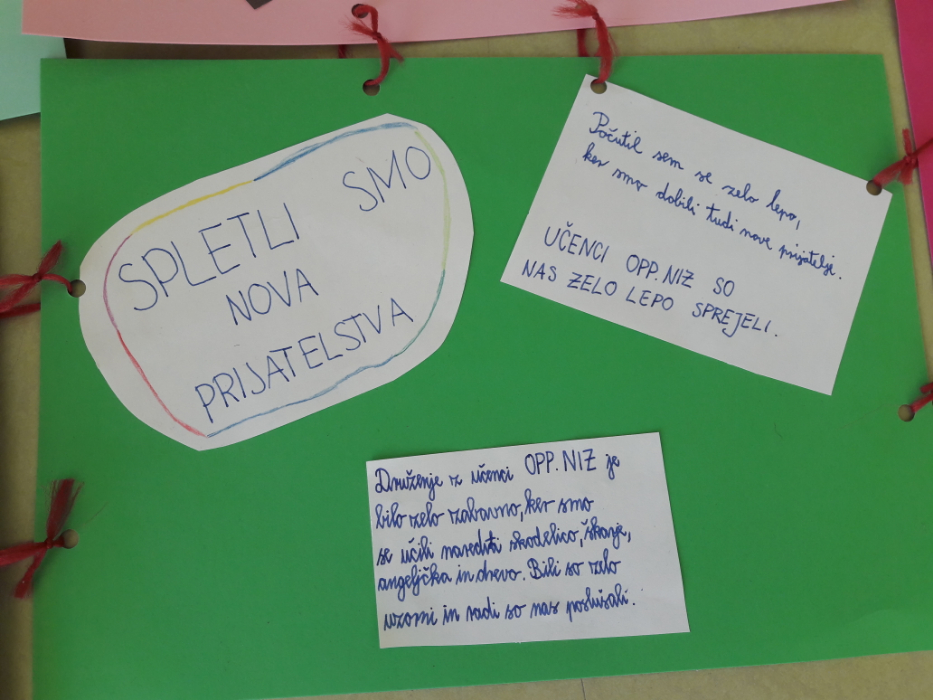 SPLETLI SMO
NOVA
PRIJATELSTVA
Počutil sem se zelo lepo,
ker smo dobili tudi nove prijatelje.
UČENCI OPP.NIZ SO
NAS ZELO LEPO SPREJELI.
Druženje z učenci OPP.NIZ je
bilo zelo zabavno, ker smo
se učili narediti skodelico, škarje,
angeljčka in drevo. Bili so zelo
vzorni in radi so nas poslušali.